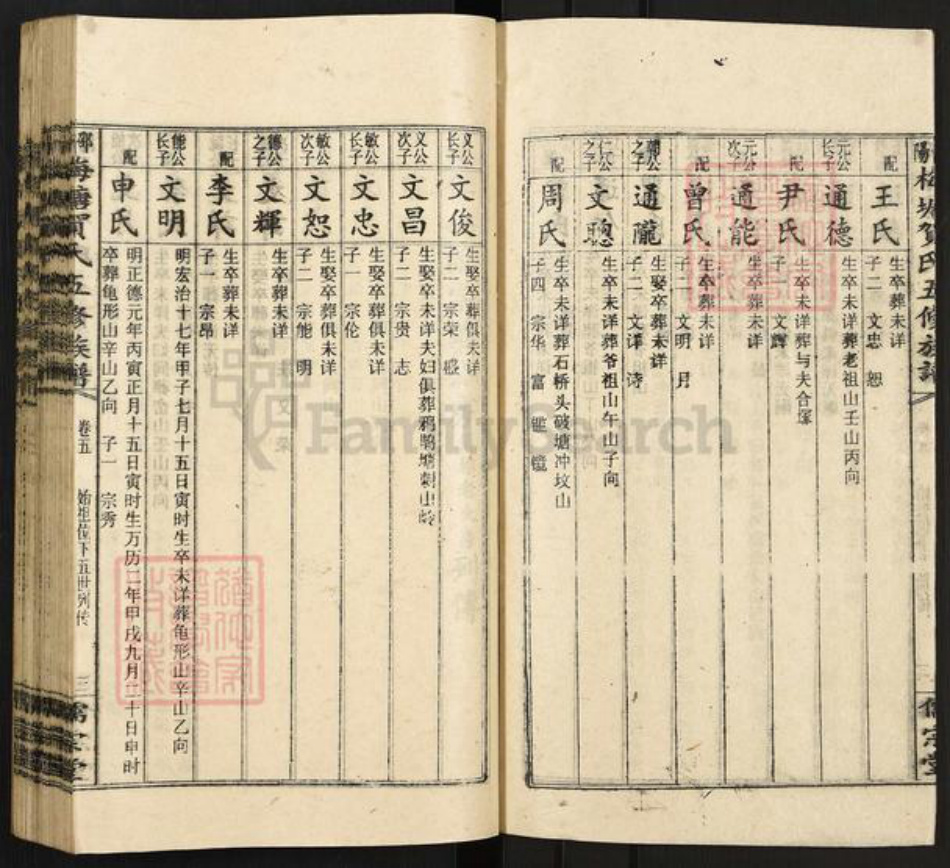 王氏
生卒葬未详
子二 文忠 恕
元公长子
通德
生卒未详葬老祖山壬山丙向
配
尹氏
生卒未详葬与夫合冢
子一 文辉
元公次子
通能
生卒葬未详
配
曾氏
生卒葬未详
子二 文明 月
之子
通隴
生娶卒葬未详
子二 文泽 诗
仁公之子
文聰
生卒未详葬爷祖山午山子向
配
周氏
生卒未详葬石桥头破塘冲坟山
子四 宗华 富 镜
梅 贺氏五修族谱
儒宗堂
义公长子
文俊
生娶卒葬俱未详
子二 宗荣 盛
义公次子
文昌
生娶卒未详夫妇俱葬鸦鹊塘 山岭
子二 宗贵 志
敏公长子
文忠
生娶卒葬俱未详
子一 宗伦
敏公次子
文恕
生娶卒葬俱未详
子二 宗能 明
德公之子
文輝
生卒葬未详
配
李氏
生卒葬未详
子一 宗昂
能公长子
文明
明宏治十七年甲子七月十五日寅时生卒未详葬龟形山辛山乙向
配
申氏
明正德元年丙寅正月十五日寅时生万历二年甲戌九月二十日申时
卒葬龟形山辛山乙向 子一 宗秀
贺氏五修族谱
卷五
始祖位下五世列传
三
儒宗堂
FamilySearch